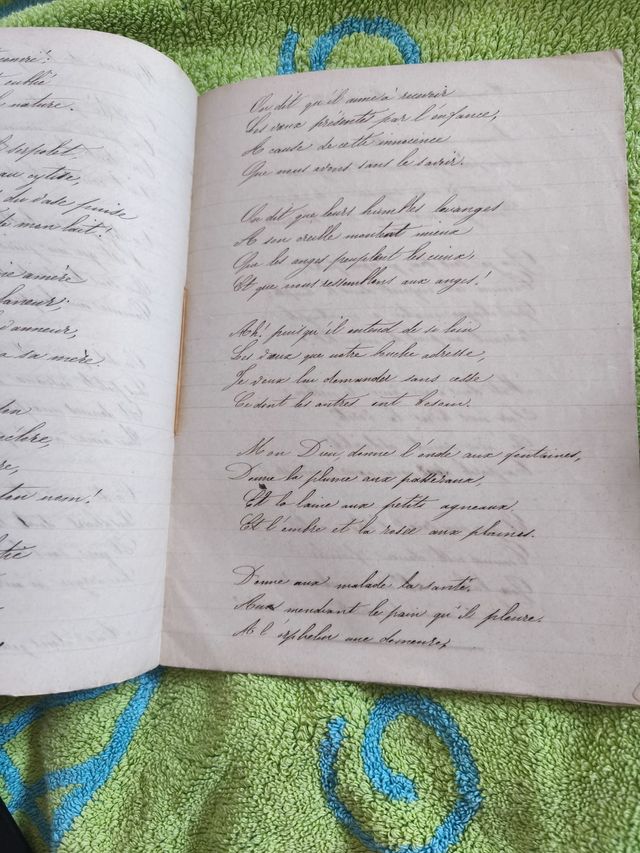 oublié
nature.
au cytise,
du vase puise
mon lait!
amère
à sa mère.
ton nom!
On dit qu'il aime à recevoir
Les vœux présentés par l'enfance,
A cause de cette innocence
Que nous avons sans le savoir.
On dit que leurs humbles louanges
A son oreille montent mieux
Que les anges peuplent les cieux,
Et que nous ressemblons aux anges!
Ah! puisqu'il entend de si loin
Les vœux que notre bouche adresse,
Je veux lui demander sans cesse
Ce dont les autres ont besoin.
Mon Dieu, donne l'onde aux fontaines,
Donne la plume aux passereaux,
Et la laine aux petits agneaux
Et l'ombre et la rosée aux plaines.
Donne aux malade la santé,
Aux mendiant le pain qu'il pleure,
A l'orphelin une demeure,